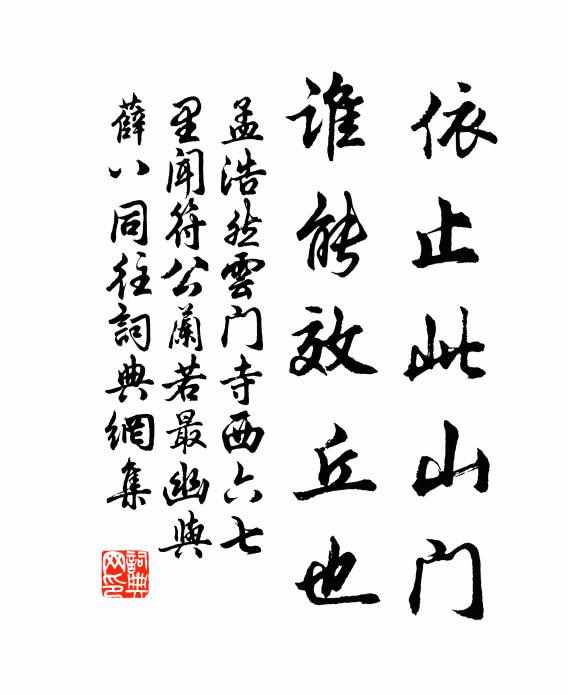 依止此山门
谁能效丘也
孟浩然雲门寺西六七
里闻符公蘭若最幽與
薛八同往詞典網集
詞典网印